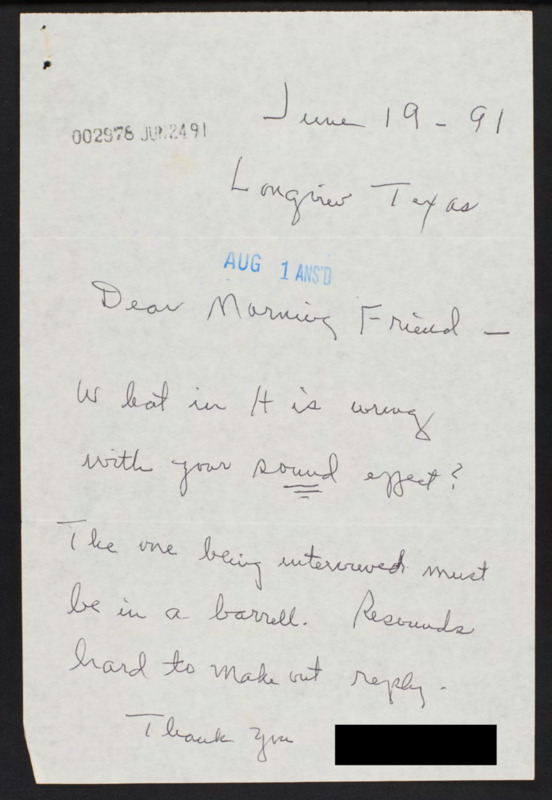 June 19 - 91
002978 JUN 24 91
Longview Texas
AUG 1 ANS'D
Dear Morning Friend —
What in H is wrong
with your sound effect?
The one being interviewed must
be in a barrell. Resounds
hard to make out reply.
Thank you